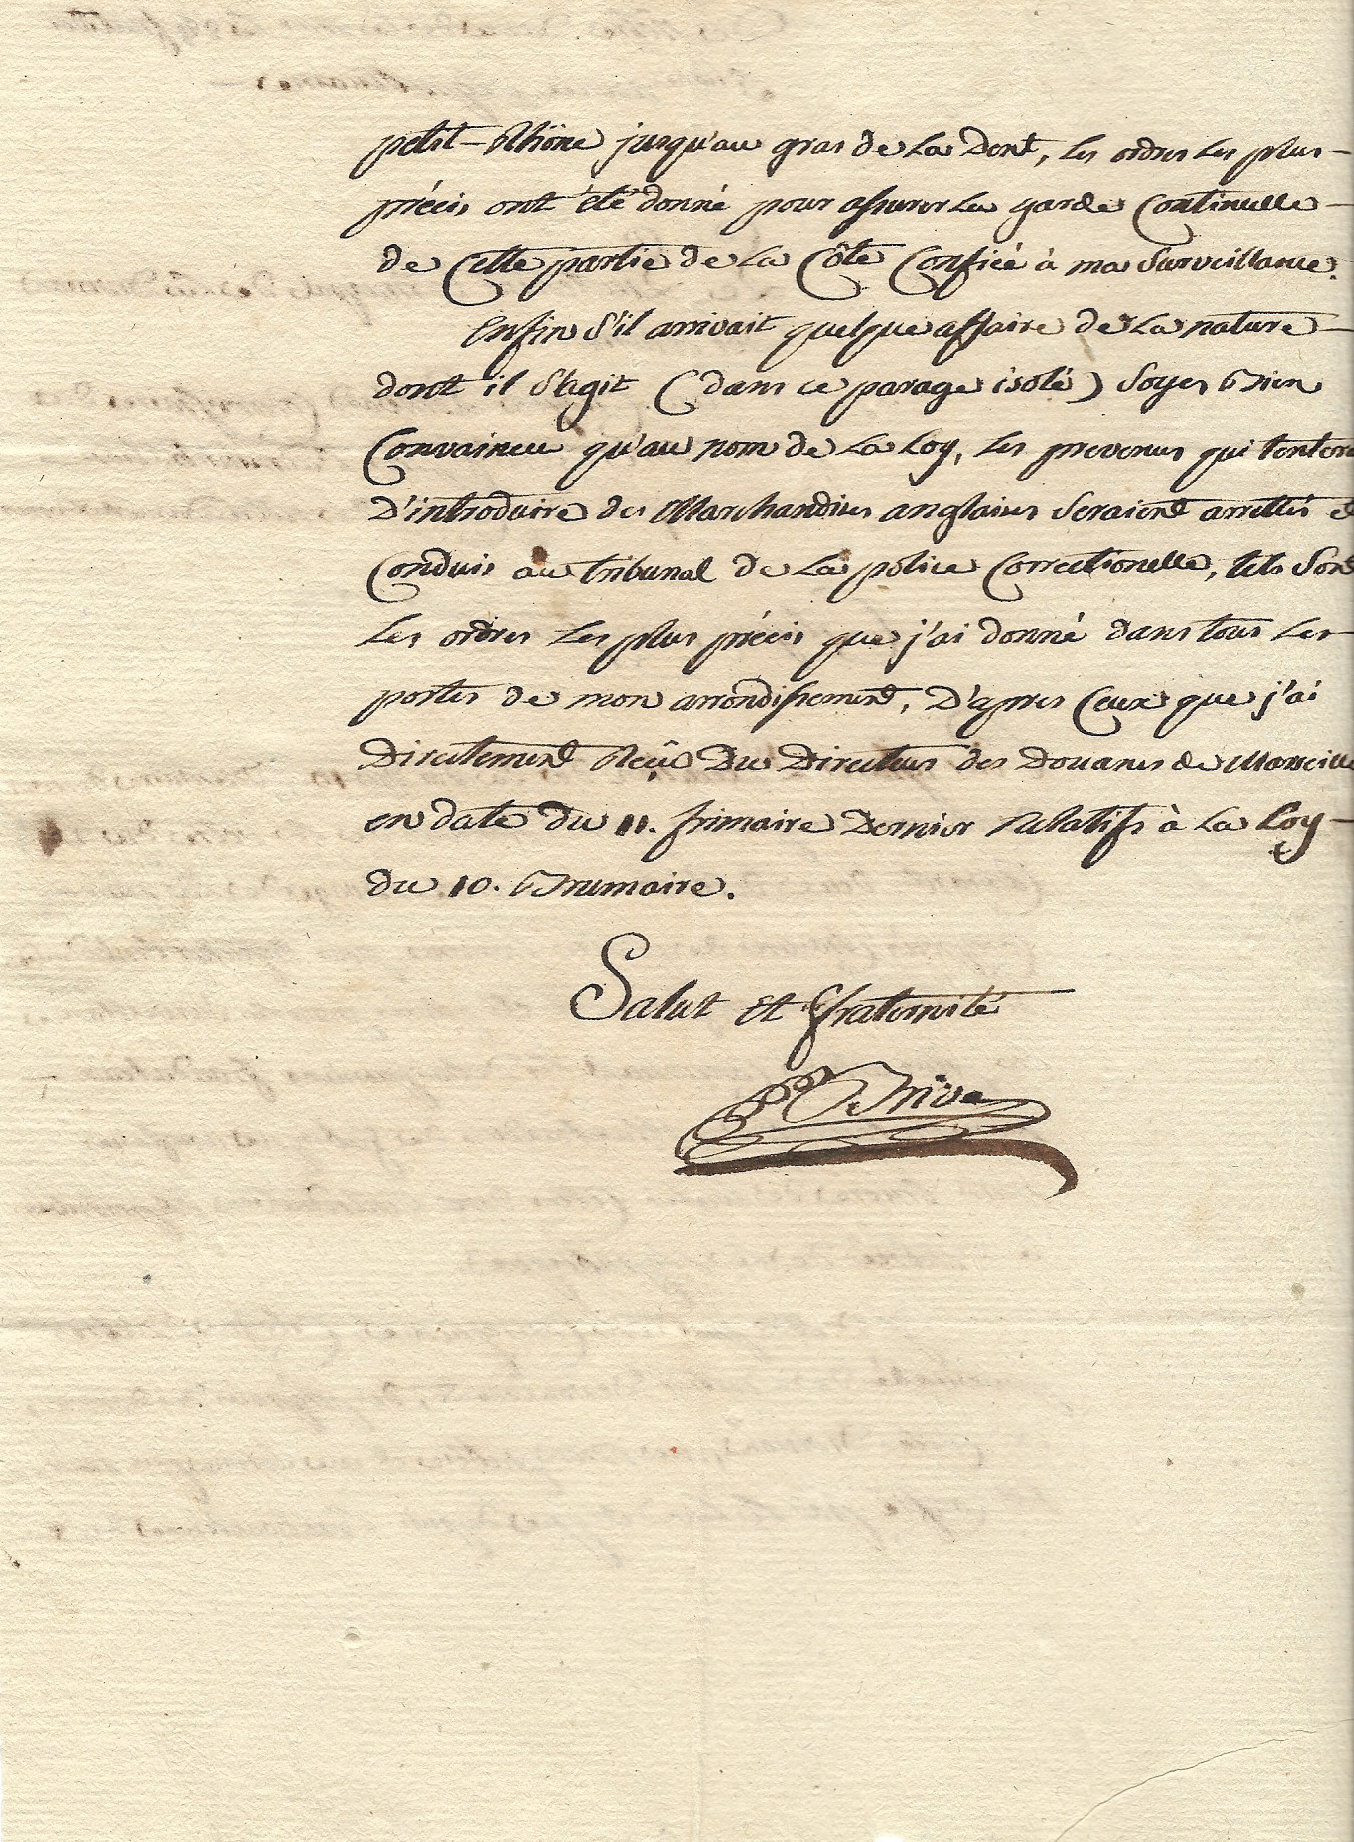 petit-Rhône jusqu'au gras de la Dent, les ordres les plus-
précis ont été donné pour assurer la garde Continuelle-
de Cette partie de la Côte Confiée à ma Surveillance.
Enfin S'il arrivait quelque affaire de la nature-
dont il S'agit (dans ce parage isolé) Soyes bien
Convaincu qu'au nom de la Loy, les prevenus qui
D'introduire des Marchandises anglaises Seraient arrettés
Conduis au tribunal de la police Correctionelle, tels Sont
les ordres les plus précis que j'ai donné dans tous les-
postes de mon arrondissement, D'apres Ceux que j'ai
Directement Reçû Du Directeur des Douanes de Marseille
en date du 11. frimaire Dernier Relatifs à la Loy-
du 10. Brumaire.
Salut et fraternité